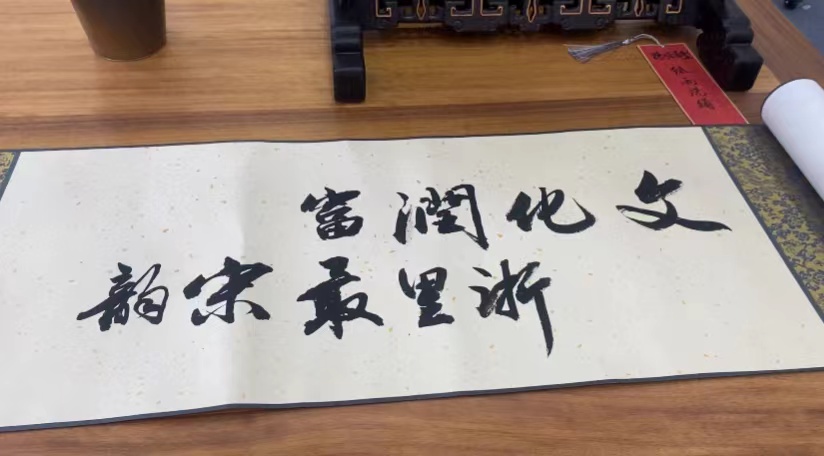 文化潤富
浙里最宋韵